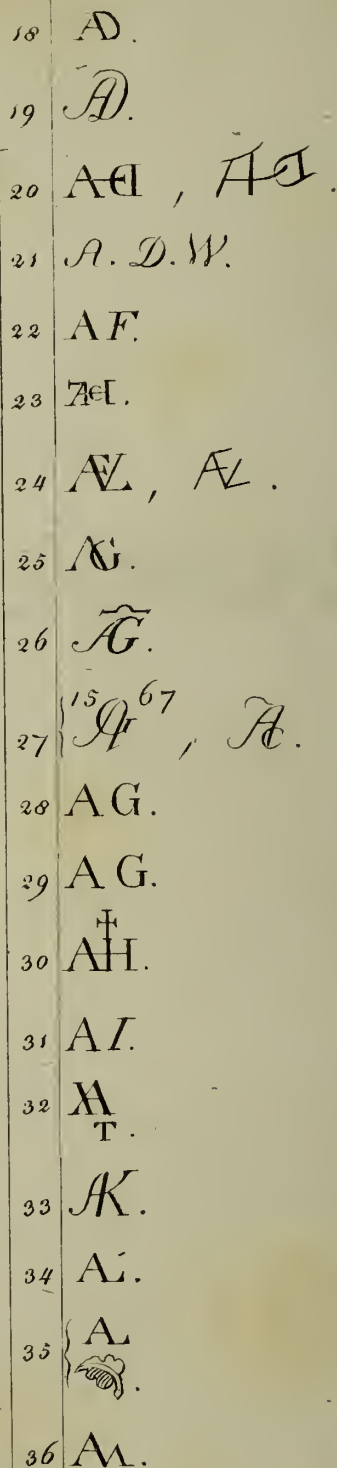 18 AD.
19 AD.
20 AEI, AEI.
21 A. D. W.
22 A F.
23 AEI.
24 AEL, AEL.
25 AG.
26 AG.
27 15 AG 67, AG.
28 A G.
29 A G.
30 AH.
31 A I.
32
T.
33 AK.
34 AL.
35 AL
36